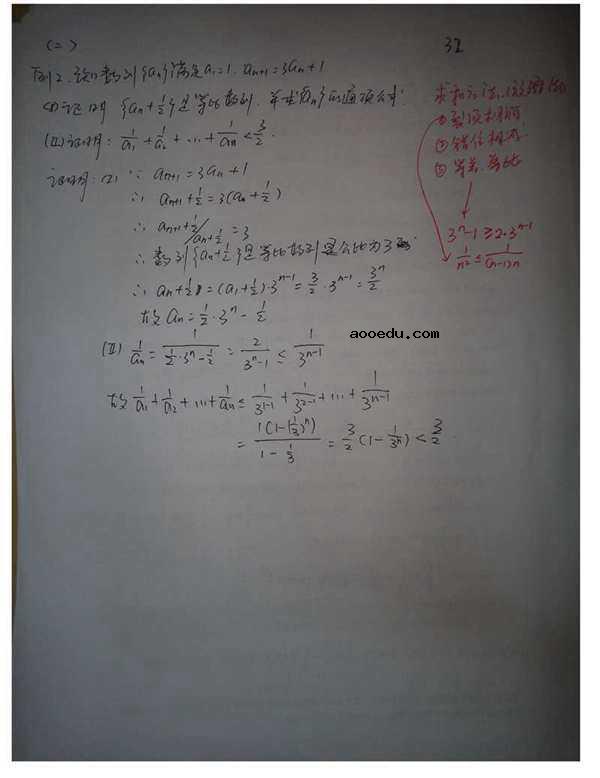 (二)
32
例2. 设数列{an}满足a₁=1. aₙ₊₁=3aₙ+1
(I) 证明 {aₙ+1/2}是等比数列. 并求{aₙ}的通项公式
(II) 证明: 1/a₁+1/a₂+…+1/aₙ<3/2.
证明: (I) ∵ aₙ₊₁=3aₙ+1
∴ aₙ₊₁+1/2=3(aₙ+1/2)
∴ aₙ₊₁+1/2/aₙ+1/2=3
∴ 数列{aₙ+1/2}是等比数列 公比为3
∴ aₙ+1/2=(a₁+1/2)·3ⁿ⁻¹=3/2·3ⁿ⁻¹=3ⁿ/2
故 aₙ=1/2·3ⁿ-1/2
(II) 1/aₙ=1/(1/2·3ⁿ-1/2)=2/(3ⁿ-1)≤1/3ⁿ⁻¹
故 1/a₁+1/a₂+…+1/aₙ≤1/3¹⁻¹+1/3²⁻¹+…+1/3ⁿ⁻¹
=1(1-1/3ⁿ)/(1-1/3)=3/2(1-1/3ⁿ)<3/2.
求和方法
①裂项相消
②错位相减
③等差.等比
3ⁿ-1≥2·3ⁿ⁻¹
1/n²≤1/(n-1)n
aooedu.com